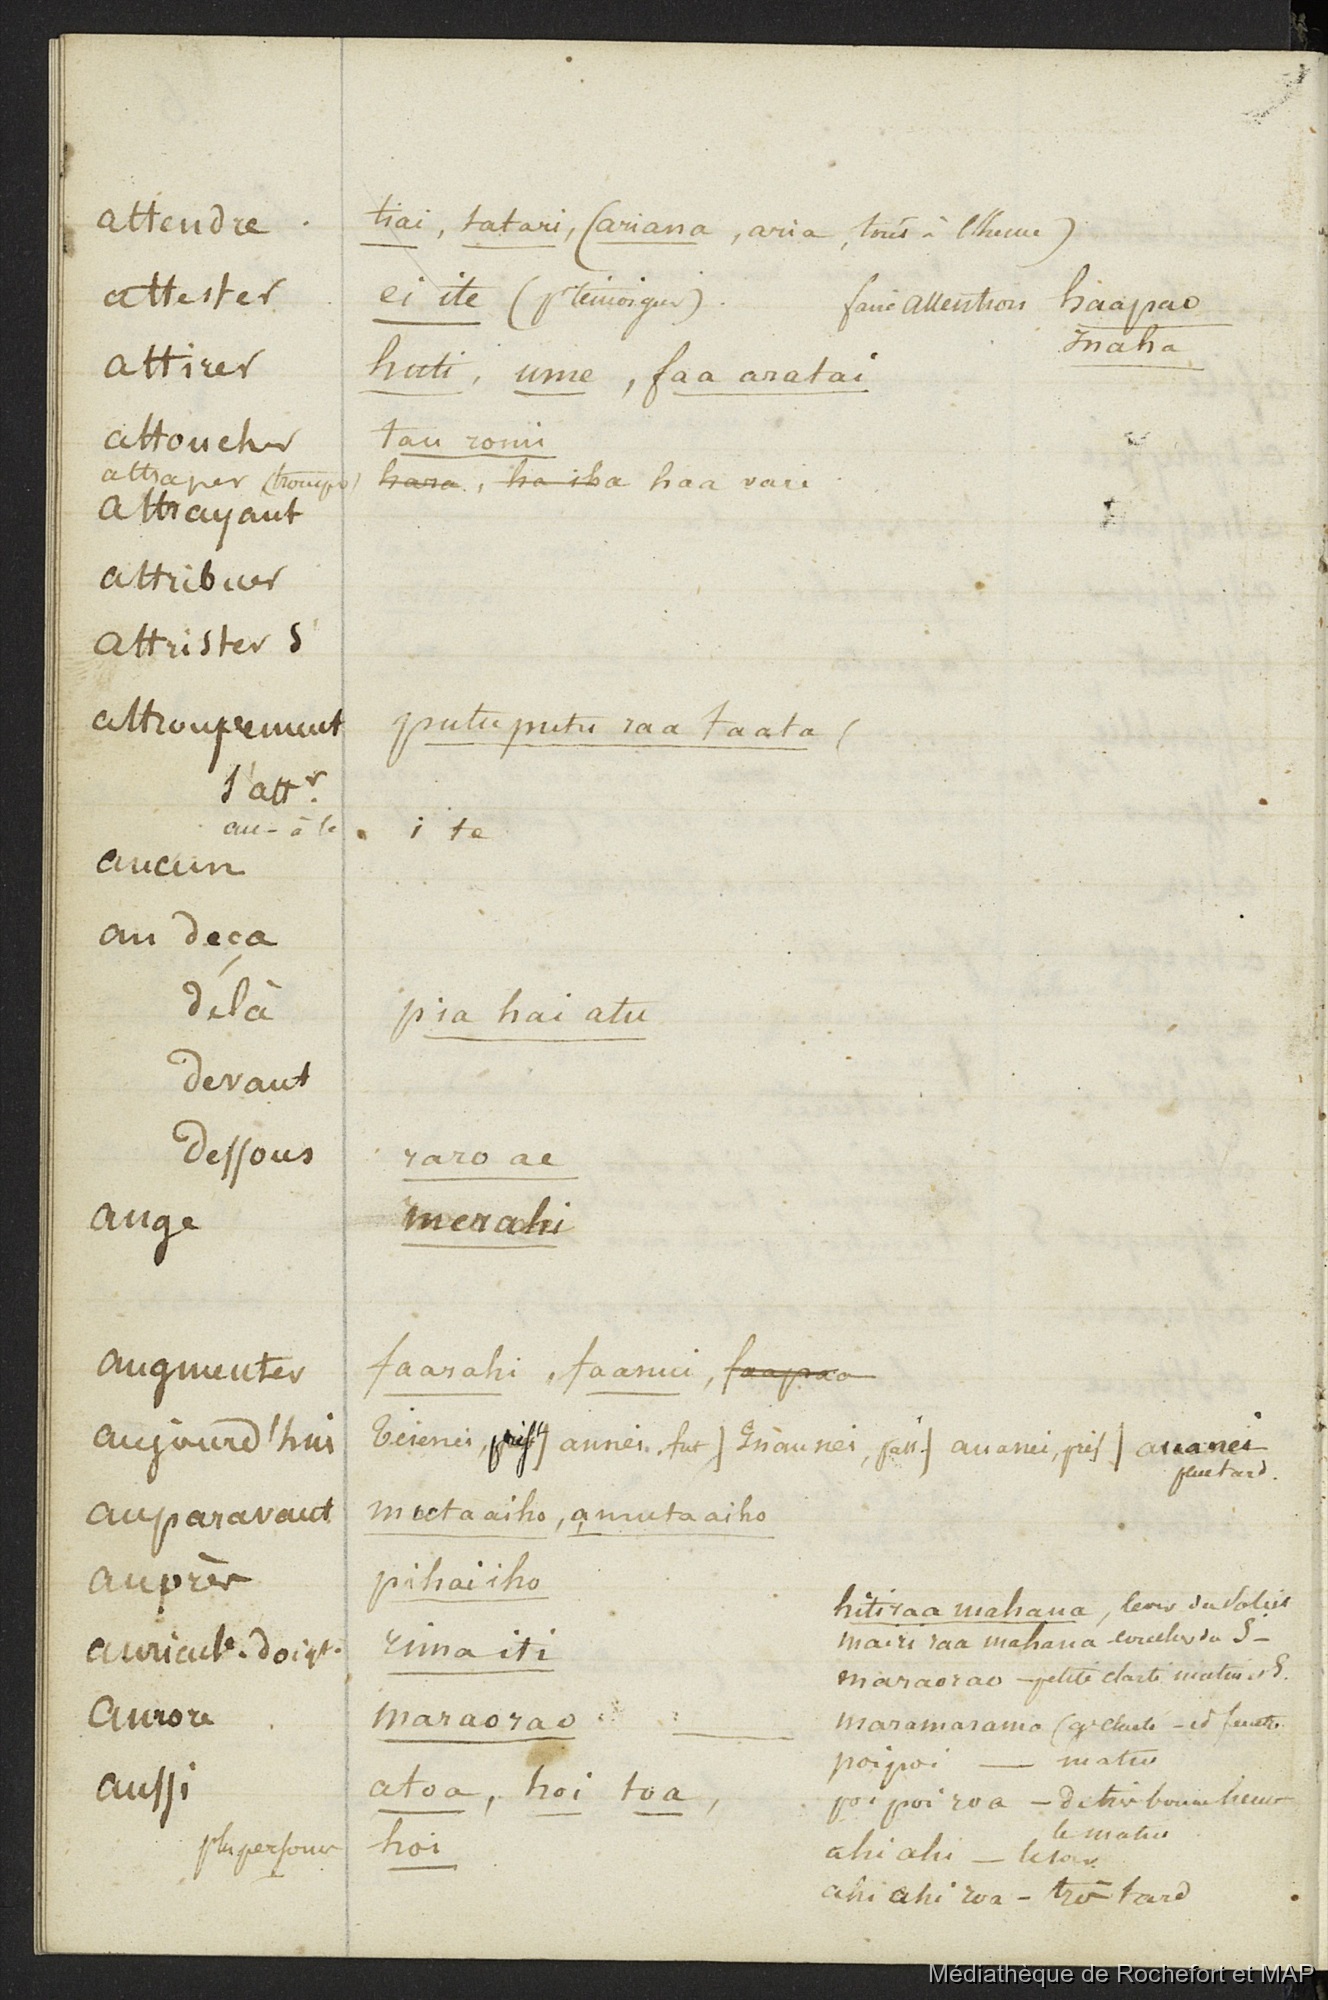 attendre tiai, tatari, (ariana, aria, tout à l'heure)
attester ei ite (pr témoigner). faire attention haapao
inaha
attirer huti, ume, faa aratai
attoucher tau romi
attraper (tromper) hara, ha iha haa vare
attrayant
attribuer
attrister S'
attroupement putuputu raa taata (
S'attr.
au - à le i te
aucun
au deça
délà pia hai atu
devant
dessous raro ae
ange merahi
augmenter faarahi, faanui, faapao
aujourd'hui teienei, prest] aunei, fut] Inaunei, pass.] auanei, pres] auanei
plus tard.
auparavant mutaaiho, amutaaiho
auprès pihaiiho
hitiraa mahana, lever du Soleil
auricule. doigt. rima iti mairi raa mahana coucher du S-
maraorao - petite clarté matin S.
aurore maraorao maramarama (gde clarté - id fenetre
poipoi — matin
aussi atoa, hoi toa, poi poi roa - de très bonne heure
le matin
plus personne hoi ahi ahi — le soir
ahi ahi roa - très tard
Médiathèque de Rochefort et MAP